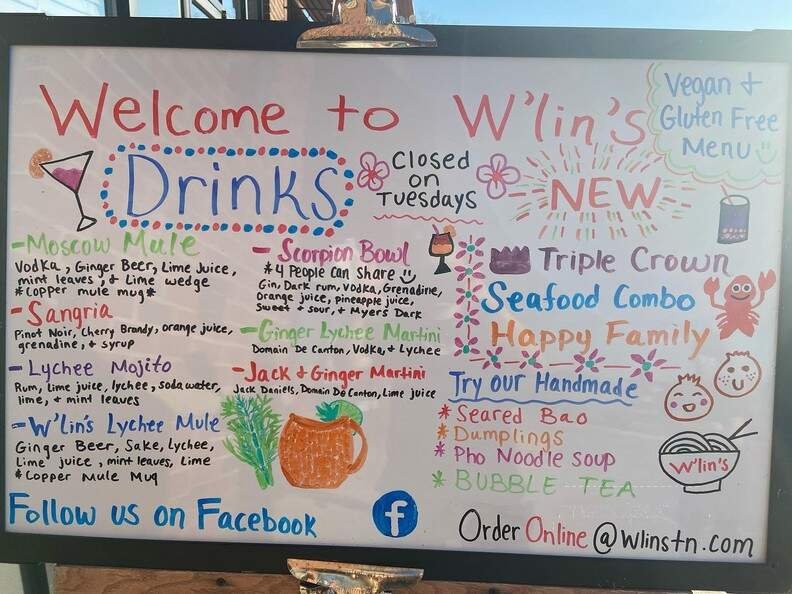 Welcome to W'lin's
Vegan +
Gluten Free
Menu
Drinks
Closed
on
Tuesdays
NEW
- Moscow Mule
Vodka, Ginger Beer, Lime Juice,
mint leaves, & Lime wedge
*Copper mule mug*
- Sangria
Pinot Noir, Cherry Brandy, orange juice,
grenadine, + syrup
- Lychee Mojito
Rum, lime juice, lychee, soda water,
lime, + mint leaves
- W'lin's Lychee Mule
Ginger Beer, Sake, Lychee,
Lime juice, mint leaves, Lime
*Copper Mule Mug
- Scorpion Bowl
*4 People Can Share
Gin, Dark rum, Vodka, Grenadine,
orange juice, pineapple juice,
Sweet + sour, + Myers Dark
- Ginger Lychee Martini
Domain De Canton, Vodka, + Lychee
- Jack + Ginger Martini
Jack Daniels, Domain De Canton, Lime juice
Triple Crown
Seafood Combo
Happy Family
Try our Handmade
* Seared Bao
* Dumplings
* Pho Noodle Soup
* BUBBLE TEA
W'lin's
Follow us on Facebook
f
Order Online @wlinstn.com